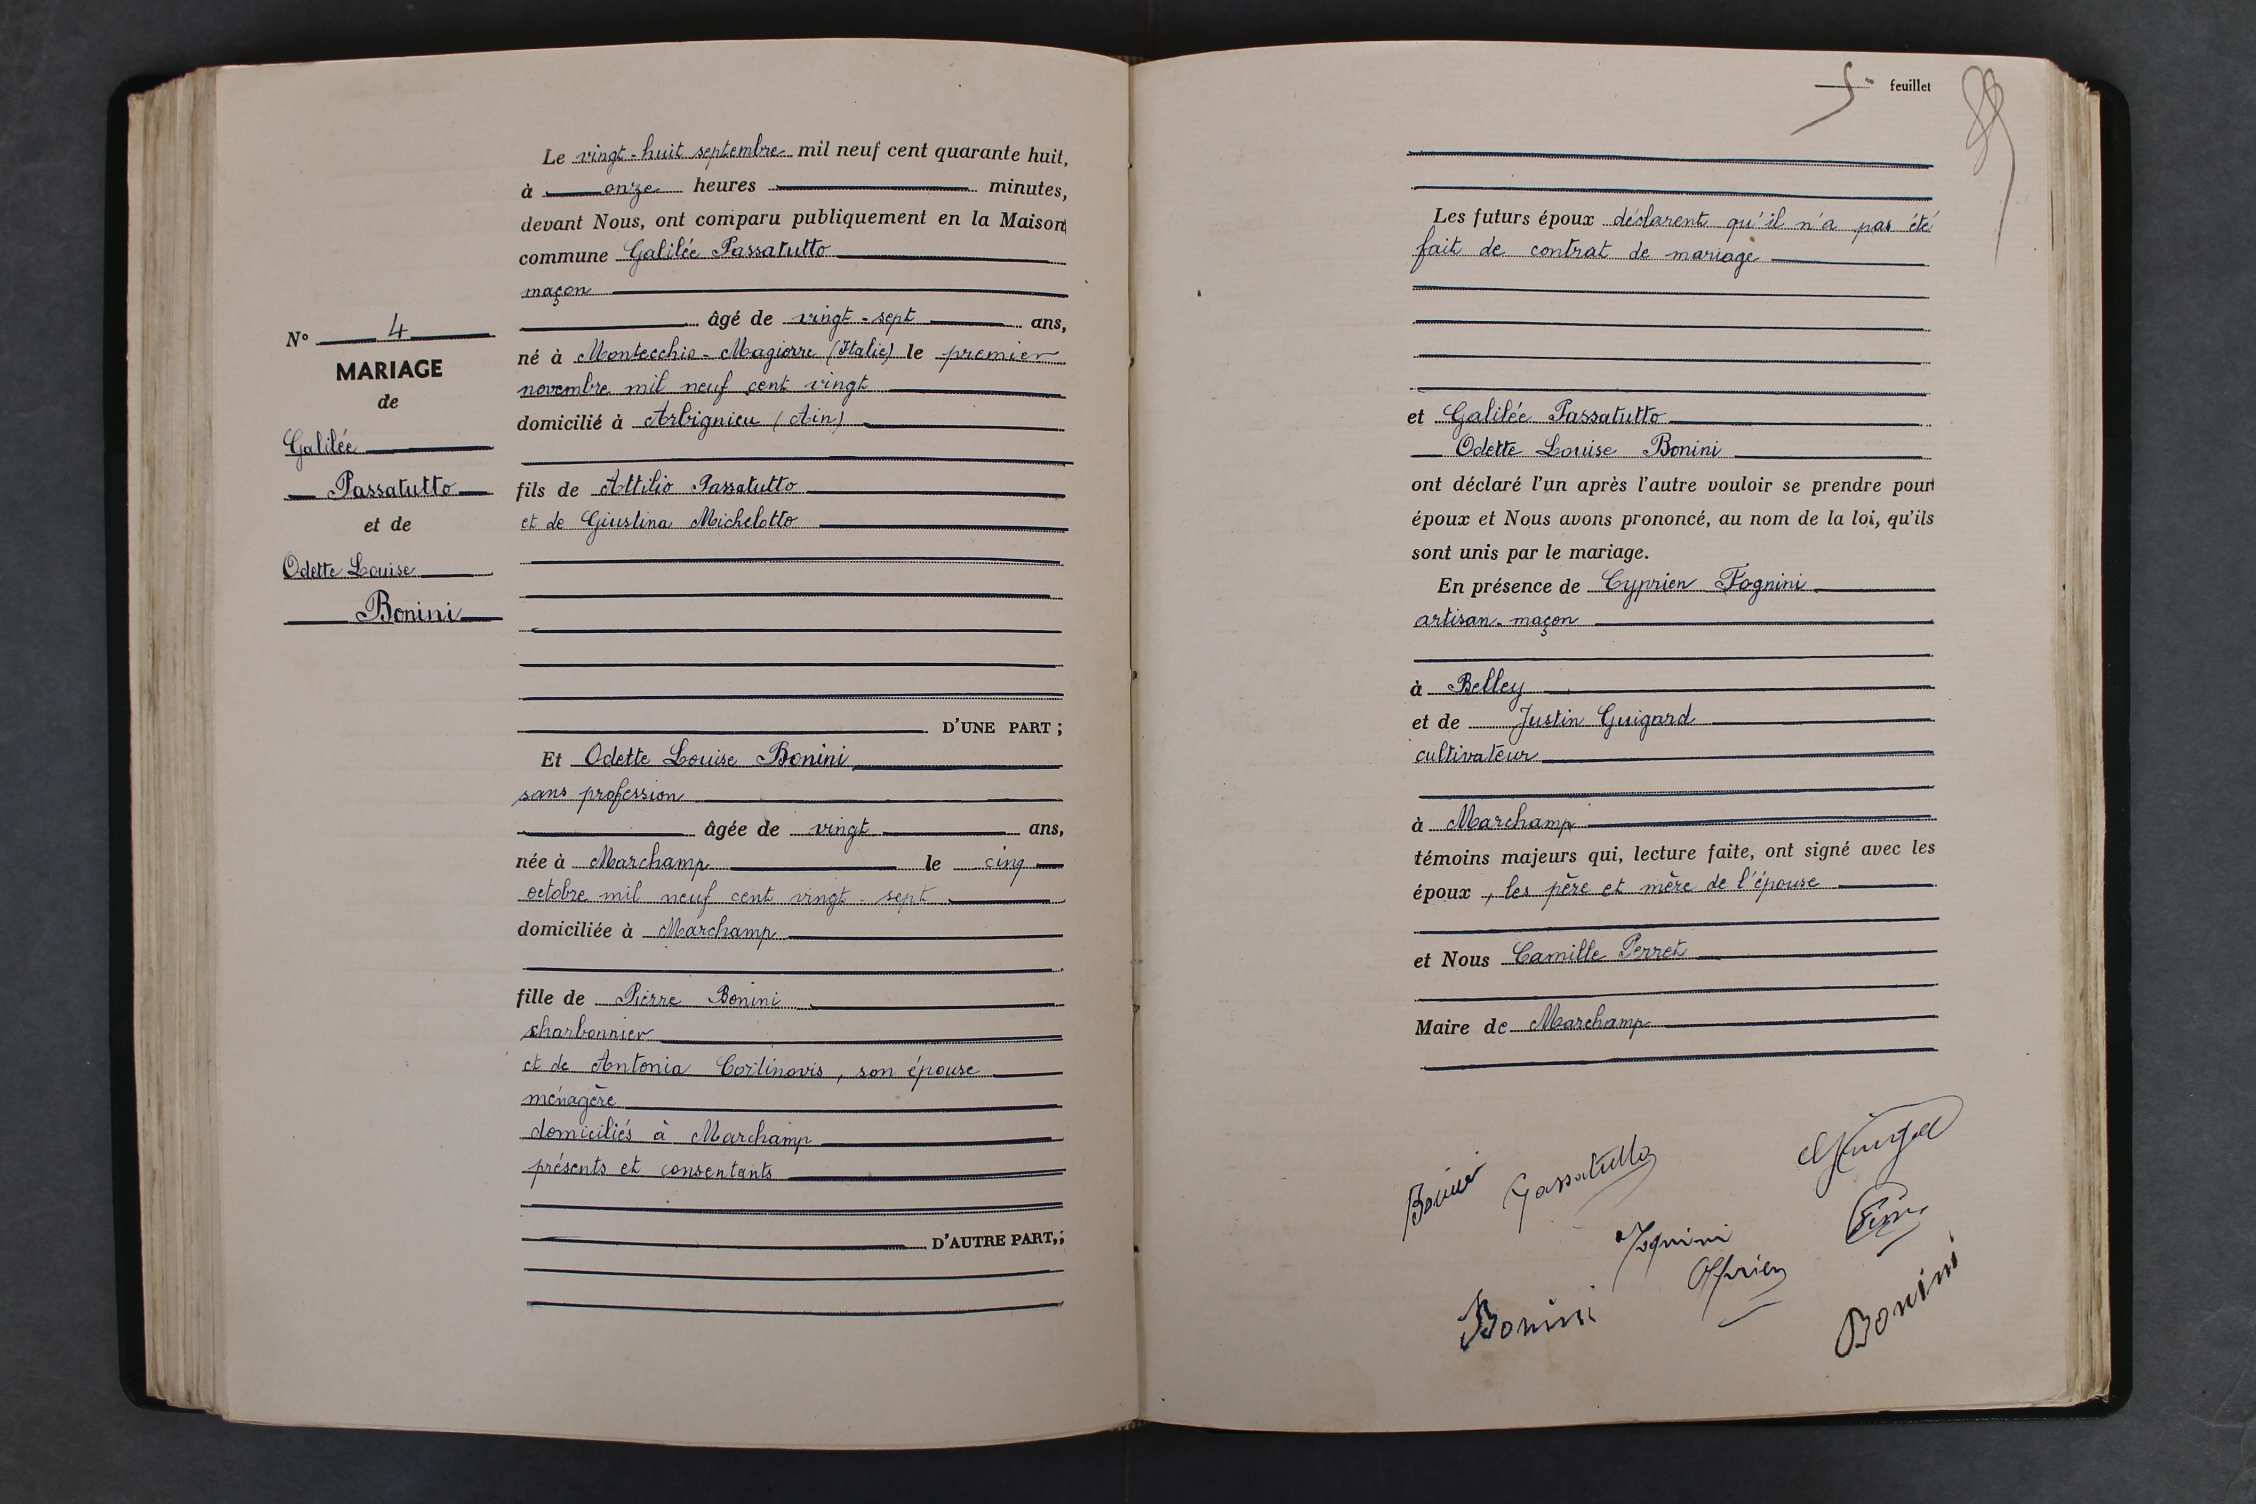 Le vingt-huit septembre mil neuf cent quarante huit,
à onze heures minutes,
devant Nous, ont comparu publiquement en la Maison
commune Galilée Passatutto
maçon
âgé de vingt-sept ans,
né à Montecchio-Magiorre (Italie) le premier
novembre mil neuf cent vingt
domicilié à Arbignieu (Ain)
fils de Attilio Passatutto
et de Giustina Michelotto
D'UNE PART ;
Et Odette Louise Bonini
sans profession
âgée de vingt ans,
née à Marchamp le cinq
octobre mil neuf cent vingt-sept
domiciliée à Marchamp
fille de Pierre Bonini
charbonnier
et de Antonia Cortinovis, son épouse
ménagère
domiciliés à Marchamp
présents et consentants
D'AUTRE PART,;
N° 4
MARIAGE
de
Galilée
Passatutto
et de
Odette Louise
Bonini
5e feuillet
Les futurs époux déclarent qu'il n'a pas été
fait de contrat de mariage
et Galilée Passatutto
Odette Louise Bonini
ont déclaré l'un après l'autre vouloir se prendre pour
époux et Nous avons prononcé, au nom de la loi, qu'ils
sont unis par le mariage.
En présence de Cyprien Fognini
artisan-maçon
à Belley
et de Justin Guigard
cultivateur
à Marchamp
témoins majeurs qui, lecture faite, ont signé avec les
époux, les père et mère de l'épouse
et Nous Camille Perret
Maire de Marchamp
Bonini Passatutto
Fognini
Cyprien
Bonini
Bonini